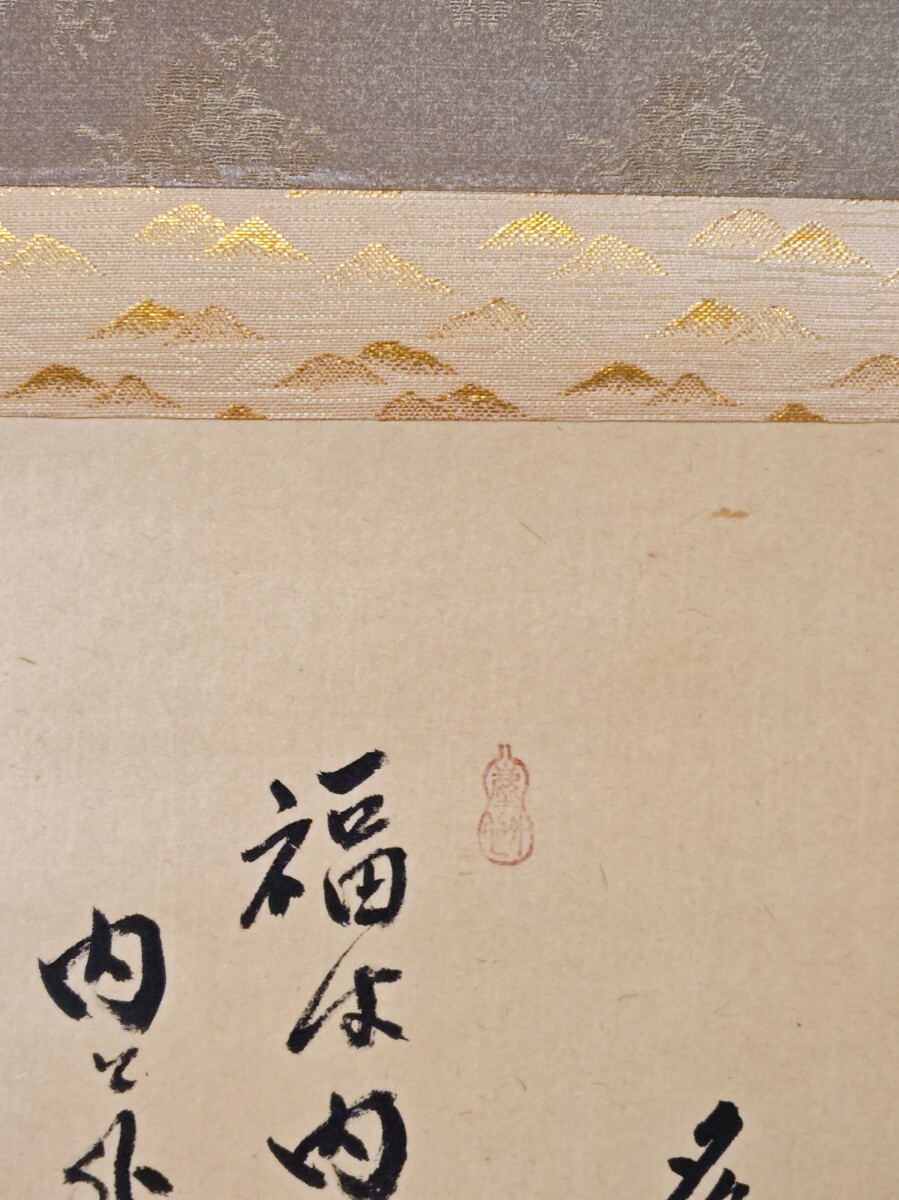 福は内
内と外